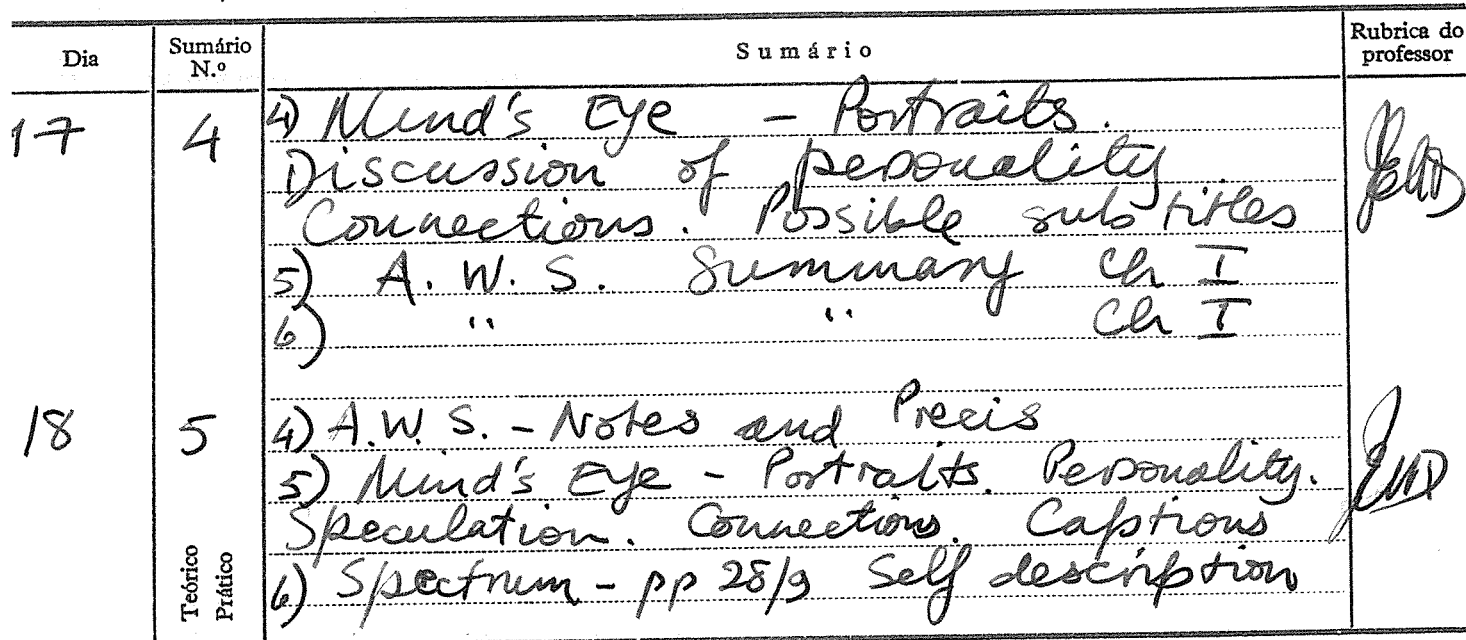 Dia
Sumário N.º
Sumário
Rubrica do professor
17
4
4) Mind's Eye - Portraits.
Discussion of personality
Connections. Possible sub titles
5) A. W. S. Summary Ch I
6) " " Ch I
18
5
4) A.W. S. - Notes and Precis
5) Mind's Eye - Portraits. Personality.
Speculation. Connections. Captions
6) Spectrum - pp 28/9 Self description
Teórico
Prático